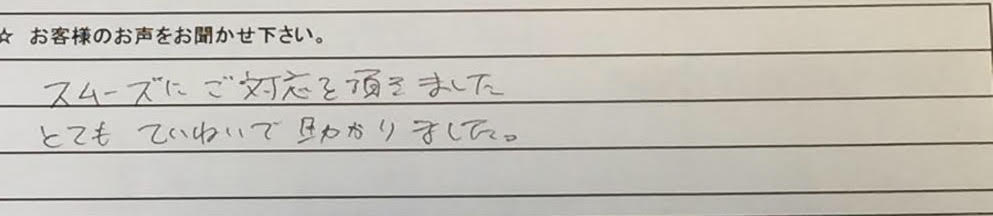 ☆ お客様のお声をお聞かせ下さい。
スムーズにご対応を頂きました
とても ていねいで 助かりました。